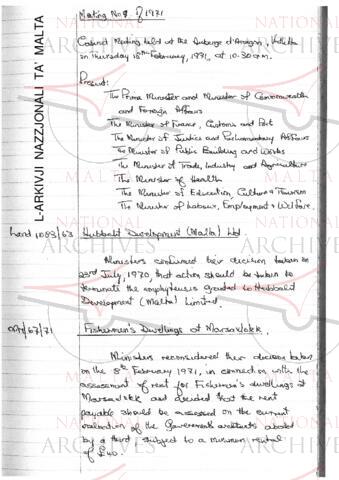 Meeting No 9 of 1971
Cabinet Meeting held at the Auberge d'Aragon, Valletta
on Thursday 18th February, 1971, at 10.30 a.m.
Present:
The Prime Minister and Minister of Commonwealth
and Foreign Affairs
The Minister of Finance, Customs and Port
The Minister of Justice and Parliamentary Affairs
The Minister of Public Building and Works
The Minister of Trade, Industry and Agriculture
The Minister of Health
The Minister of Education, Culture & Tourism
The Minister of Labour, Employment & Welfare.
Land 1083/63 Hubbald Development (Malta) Ltd.
Ministers confirmed their decision taken on
23rd July, 1970, that action should be taken to
terminate the emphyteusis granted to Hubbald
Development (Malta) Limited.
OPM/67/71 Fishermen's Dwellings at Marsaxlokk.
Ministers reconsidered their decision taken
on the 8th February 1971, in connection with the
assessment of rent for Fishermen's dwellings at
Marsaxlokk and decided that the rent
payable should be assessed on the current
valuation of the Government architects abated
by a third, subject to a minimum rental
of £40.
L-ARKIVJI NAZZJONALI TA' MALTA
NATIONAL
MALTA
ARCHIVES